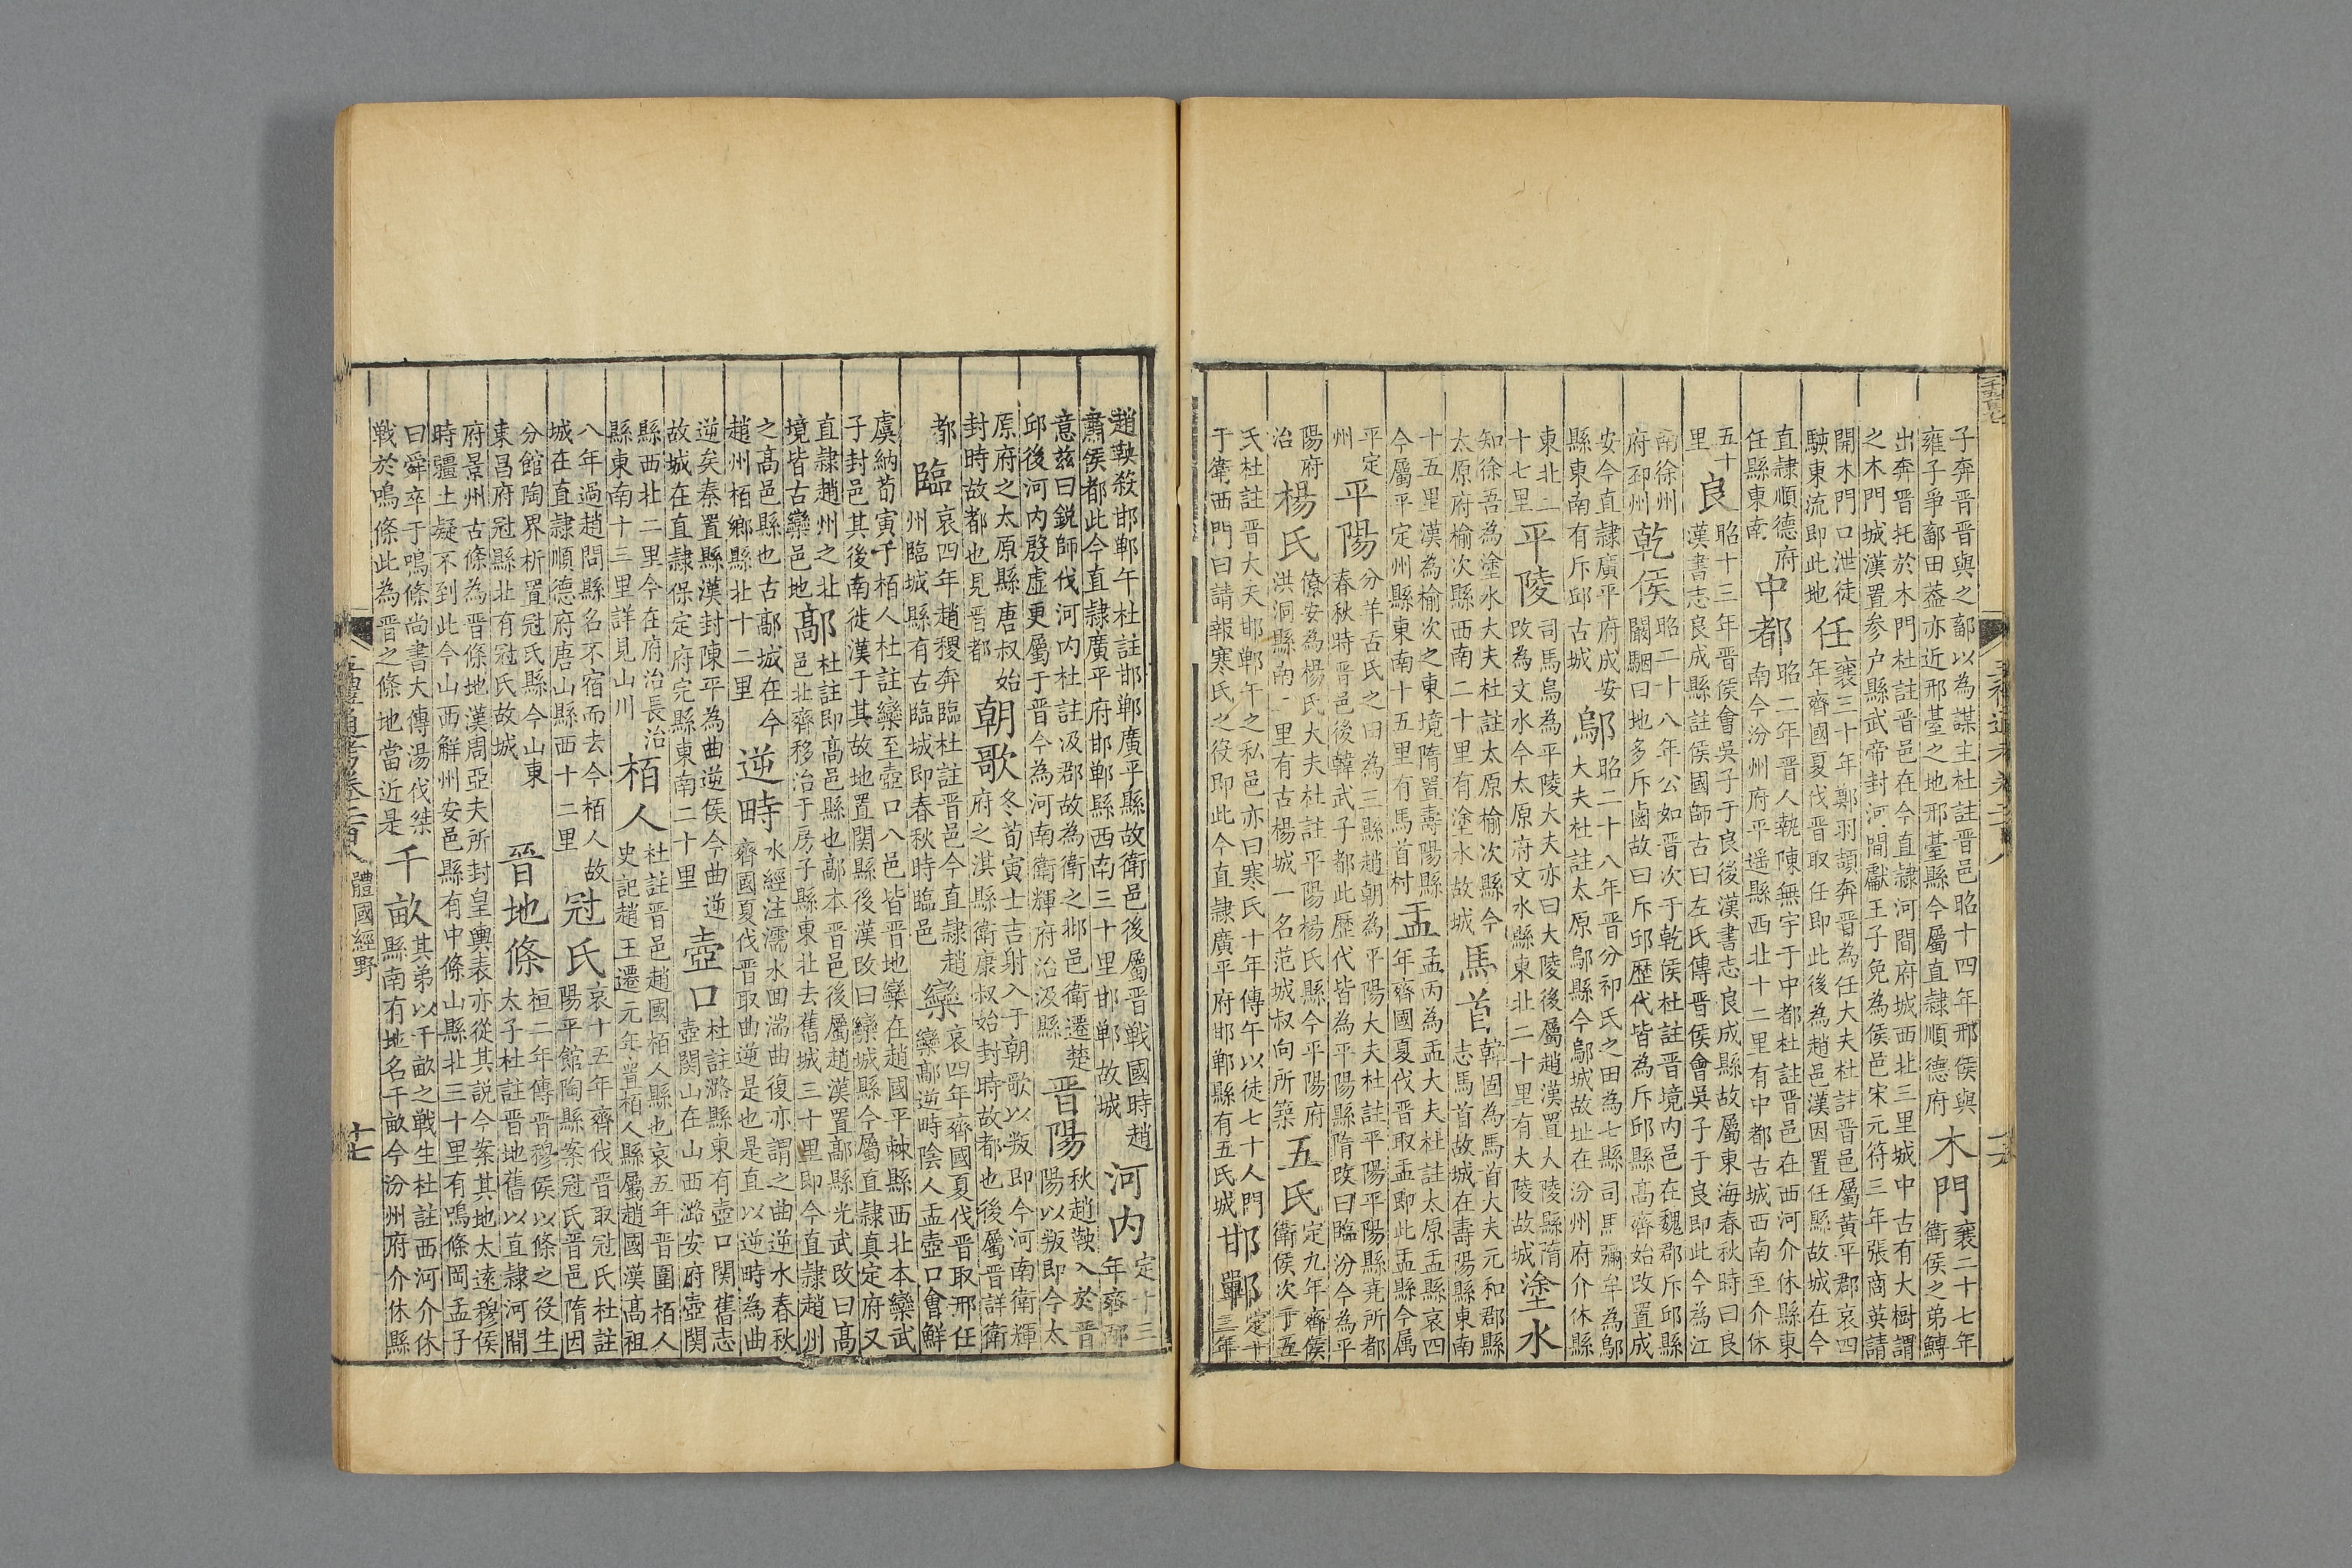 子奔晋晋與之鄐以為謀主杜註晋邑昭十四年邢侯與
雍子爭鄐田葢亦近邢䑓之地邢䑓縣今屬直隷順德府
木門
襄二十七年
衛侯之弟鱄
出奔晋托於木門杜註晋邑在今直隷河間府城西北三里城中古有大樹謂
之木門城漢置参户縣武帝封河間獻王子免為侯邑宋元符三年張商英請
開木門口泄徒
駭東流即此地
任
襄三十年鄭羽頡奔晋為任大夫杜註晋邑屬黃平郡哀四
年齊國夏伐晋取任即此後為趙邑漢因置任縣故城在今
直隷順德府
任縣東南
中都
昭二年晋人執陳無宇于中都杜註晋邑在西河介休縣東
南今汾州府平遥縣西北十二里有中都古城西南至介休
五十
里
良
昭十三年晋侯會吳子于良後漢書志良成縣故屬東海春秋時曰良
漢書志良成縣註侯國師古曰左氏傳晋侯會吳子于良即此今為江
南徐州
府邳州
乾侯
昭二十八年公如晋次于乾侯杜註晋境内邑在魏郡斥邱縣
闞駰曰地多斥鹵故曰斥邱歴代皆為斥邱縣髙齊始改置成
安今直隷廣平府成安
縣東南有斥邱古城
鄔
昭二十八年晋分祁氏之田為七縣司馬彌牟為鄔
大夫杜註太原鄔縣今鄔城故址在汾州府介休縣
東北二
十七里
平陵
司馬烏為平陵大夫亦曰大陵後屬趙漢置大陵縣隋
改為文水今太原府文水縣東北二十里有大陵故城
塗水
知徐吾為塗水大夫杜註太原榆次縣今
太原府榆次縣西南二十里有塗水故城
馬首
韓固為馬首大夫元和郡縣
志馬首故城在壽陽縣東南
十五里漢為榆次之東境隋置壽陽縣
今屬平定州縣東南十五里有馬首村
盂
孟丙為盂大夫杜註太原盂縣哀四
年齊國夏伐晋取盂即此盂縣今属
平定
州
平陽
分羊舌氏之田為三縣趙朝為平陽大夫杜註平陽平陽縣尭所都
春秋時晋邑後韓武子都此歴代皆為平陽縣隋改曰臨汾今為平
陽府
治
楊氏
僚安為楊氏大夫杜註平陽楊氏縣今平陽府
洪洞縣南一里有古楊城一名范城叔向所築
五氏
定九年齊侯
衛侯次于五
氏杜註晋大夫邯鄲午之私邑亦曰寒氏十年傳午以徒七十人門
于衛西門曰請報寒氏之役即此今直隷廣平府邯鄲縣有五氏城
邯鄲
定十
三年
趙鞅殺邯鄲午杜註邯鄲廣平縣故衛邑後屬晋戰國時趙
肅侯都此今直隷廣平府邯鄲縣西南三十里邯鄲故城
河内
定十三
年齊邴
意兹曰鋭師伐河内杜註汲郡故為衛之邶邑衛遷楚
邱後河内殷虚更屬于晋今為河南衛輝府治汲縣
晋陽
秋趙鞅入於晋
陽以叛即今太
原府之太原縣唐叔始
封時故都也見晋都
朝歌
冬荀寅士吉射入于朝歌以叛即今河南衛輝
府之淇縣衛康叔始封時故都也後屬晋詳衛
都
臨
哀四年趙稷奔臨杜註晋邑今直隷趙
州臨城縣有古臨城即春秋時臨邑
欒
哀四年齊國夏伐晋取邢任
欒鄗逆畤陰人盂壺口會鮮
虞納荀寅于栢人杜註欒至壺口八邑皆晋地欒在趙國平棘縣西北本欒武
子封邑其後南徙漢于其故地置関縣後漢改曰欒城縣今屬直隷真定府又
直隷趙州之北
境皆古欒邑地
鄗
杜註即髙邑縣也鄗本晋邑後屬趙漢置鄗縣光武改曰髙
邑北齊移治于房子縣東北去舊城三十里即今直隷趙州
之髙邑縣也古鄗城在今
趙州栢鄉縣北十二里
逆畤
水經注濡水囬湍曲復亦謂之曲逆水春秋
齊國夏伐晋取曲逆是也是直以逆畤為曲
逆矣秦置縣漢封陳平為曲逆侯今曲逆
故城在直隷保定府完縣東南二十里
壺口
杜註潞縣東有壺口関舊志
壺関山在山西潞安府壺関
縣西北二里今在府治長治
縣東南十三里詳見山川
栢人
杜註晋邑趙國栢人縣也哀五年晋圍栢人
史記趙王遷元年置栢人縣屬趙國漢髙祖
八年過趙問縣名不宿而去今栢人故
城在直隷順德府唐山縣西十二里
冠氏
哀十五年齊伐晋取冠氏杜註
陽平館陶縣案冠氏晋邑隋因
分館陶界析置冠氏縣今山東
東昌府冠縣北有冠氏故城
晉地條
桓二年傳晋穆侯以條之役生
太子杜註晋地舊以直隷河間
府景州古條為晋條地漢周亞夫所封皇輿表亦從其説今案其地太遠穆侯
時疆土疑不到此今山西解州安邑縣有中條山縣北三十里有鳴條岡孟子
曰舜卒于鳴條尚書大傳湯伐桀
戰於鳴條此為晋之條地當近是
千畝
其弟以千畝之戰生杜註西河介休
縣南有地名千畝今汾州府介休縣
五禮通考卷二百八
體國經野
十七